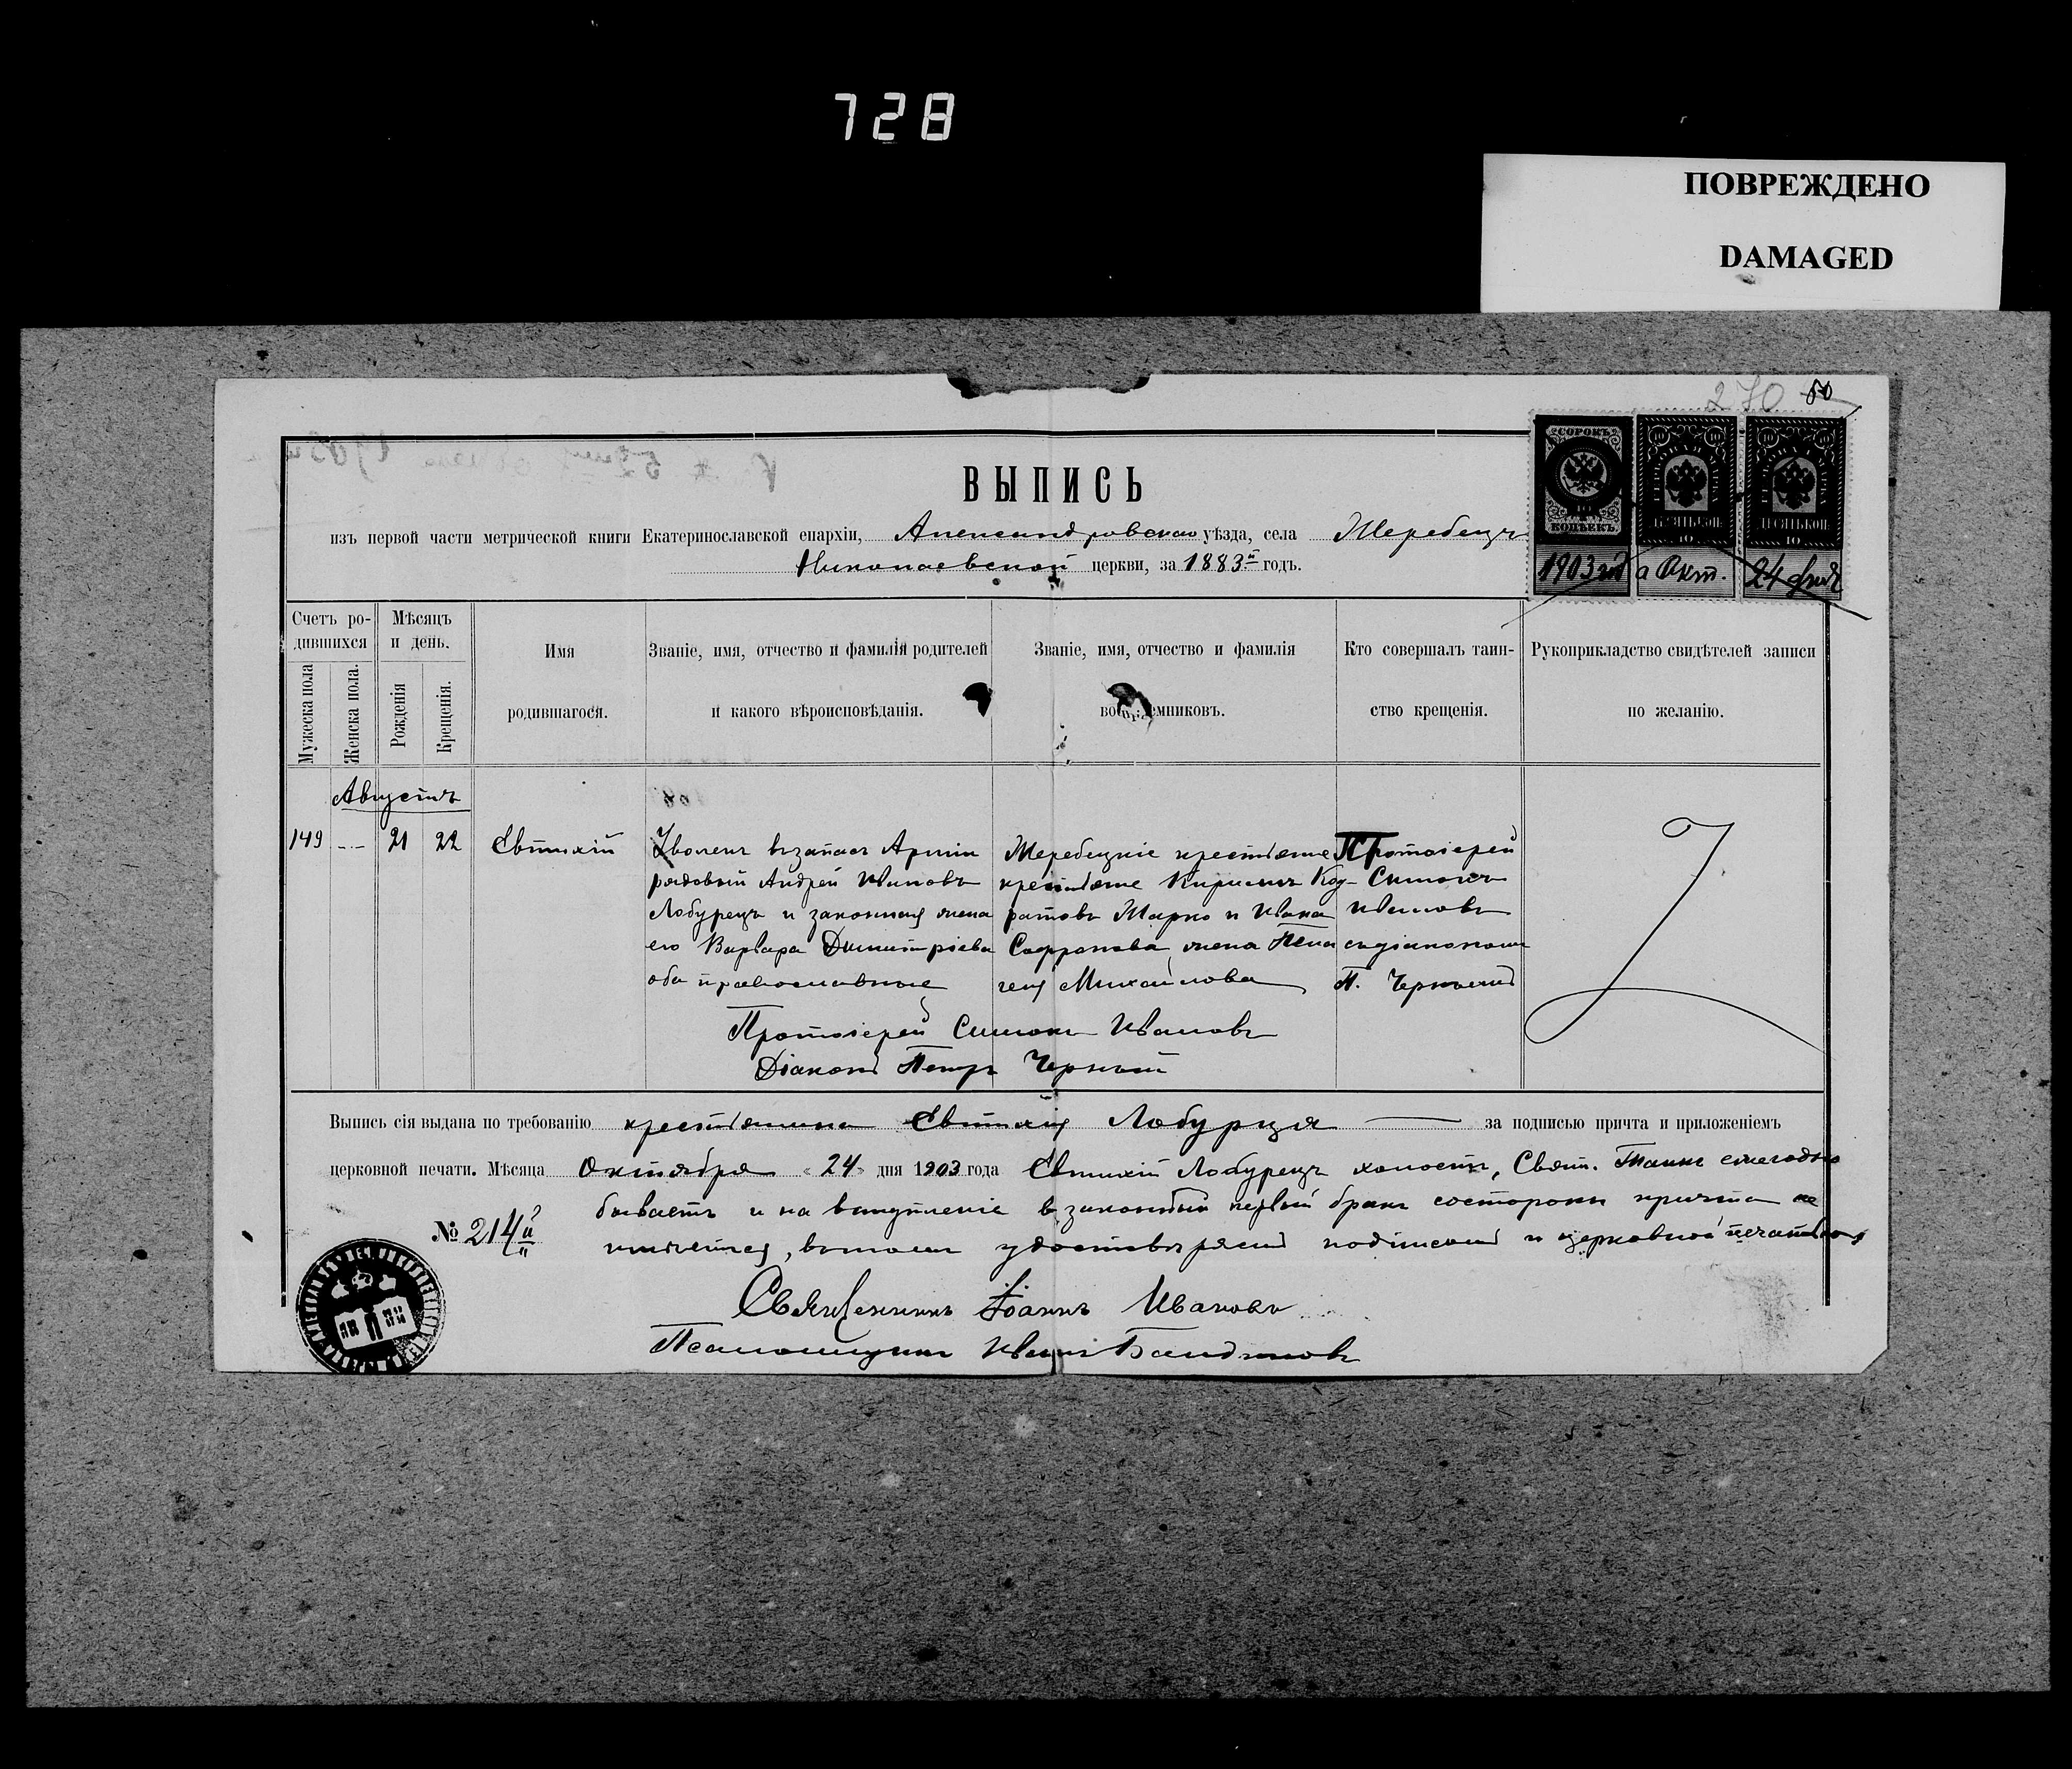 728
ПОВРЕЖДЕНО
DAMAGED
270 50
ВЫПИСЬ
изъ первой части метрической книги Екатеринославской епархіи, Александровскаго уѣзда, села Жеребецъ
Николаевской церкви, за 1883й годъ.
СОРОКЪ
КОПѢЕКЪ
10
10
1903 год
а Окт.
24 дня
Счетъ ро-
дившихся
Мѣсяцъ
и день.
Мужеска пола
Женска пола.
Рожденія
Крещенія.
Имя
родившагося.
Званіе, имя, отчество и фамилія родителей
и какого вѣроисповѣданія.
Званіе, имя, отчество и фамилія
во емниковъ.
Кто совершалъ таин-
ство крещенія.
Рукоприкладство свидѣтелей записи
по желанію.
Августъ
149 -.- 21 22
Евтихій
Уволен. взапасъ Арміи
рядовый Андрей Ивановъ
Лобурецъ и законная жена
его Варвара Димитріева
оба православные
Жеребецкіе крестьяне
крестьяне Кирилъ Код-
ратовъ Марко и Ивана
Софронова жена Пела
гея Михайлова
Протоіерей
Симонъ
Ивановъ
съ діакономъ
П. Чернымъ
Протоіерей Симонъ Ивановъ
Діаконъ Петръ Черный
Выпись сія выдана по требованію крестьянина Евтихія Лобурця за подписью причта и приложеніемъ
церковной печати. Мѣсяца Октября «24» дня 1903 года Евтихій Лобурецъ холостъ, Свят. Таинъ ежегодно
бываетъ и на вступленіе в законный первый бракъ состороны причта не
имѣется, вотомъ удостовѣряемъ подписомъ и церковной печатью
№ 214
Священникъ Іоаннъ Ивановъ
Псаломщикъ Иванъ